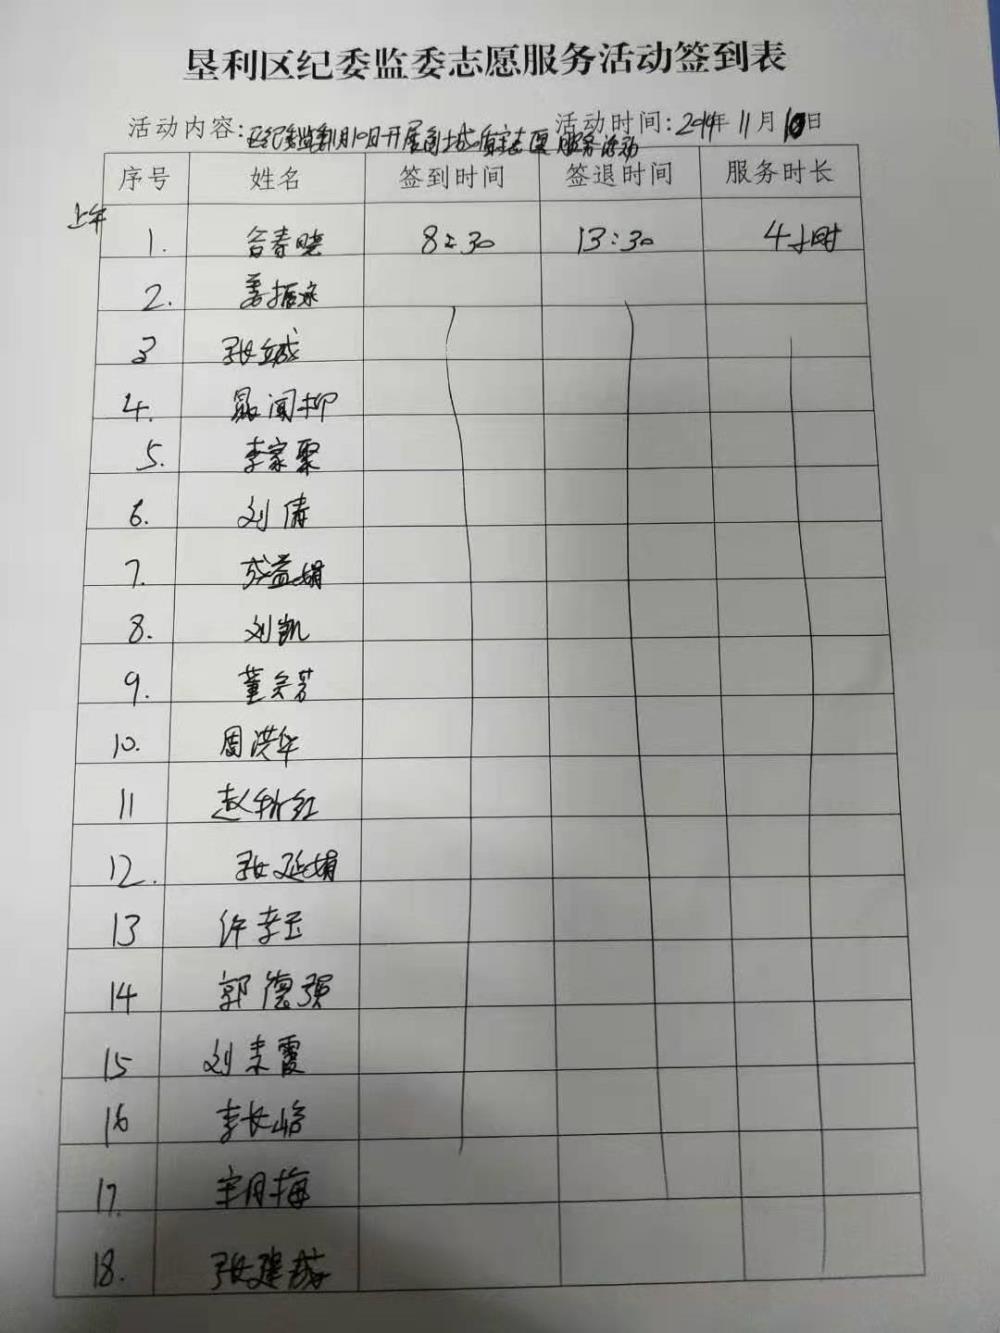 垦利区纪委监委志愿服务活动签到表
活动内容: 区纪委监委11月10日开展创城志愿服务活动 活动时间: 2019年11月10日
序号 姓名 签到时间 签退时间 服务时长
上午
1. 春晓 8:30 13:30 4小时
2. 姜振
3 张
4. 闻柳
5. 李家聚
6. 刘倩
7. 益娟
8. 刘凯
9. 董芳
10. 周洪华
11 赵红
12. 张延娟
13 许玉
14 郭德强
15 刘霞
16 李长
17. 月梅
18. 张建